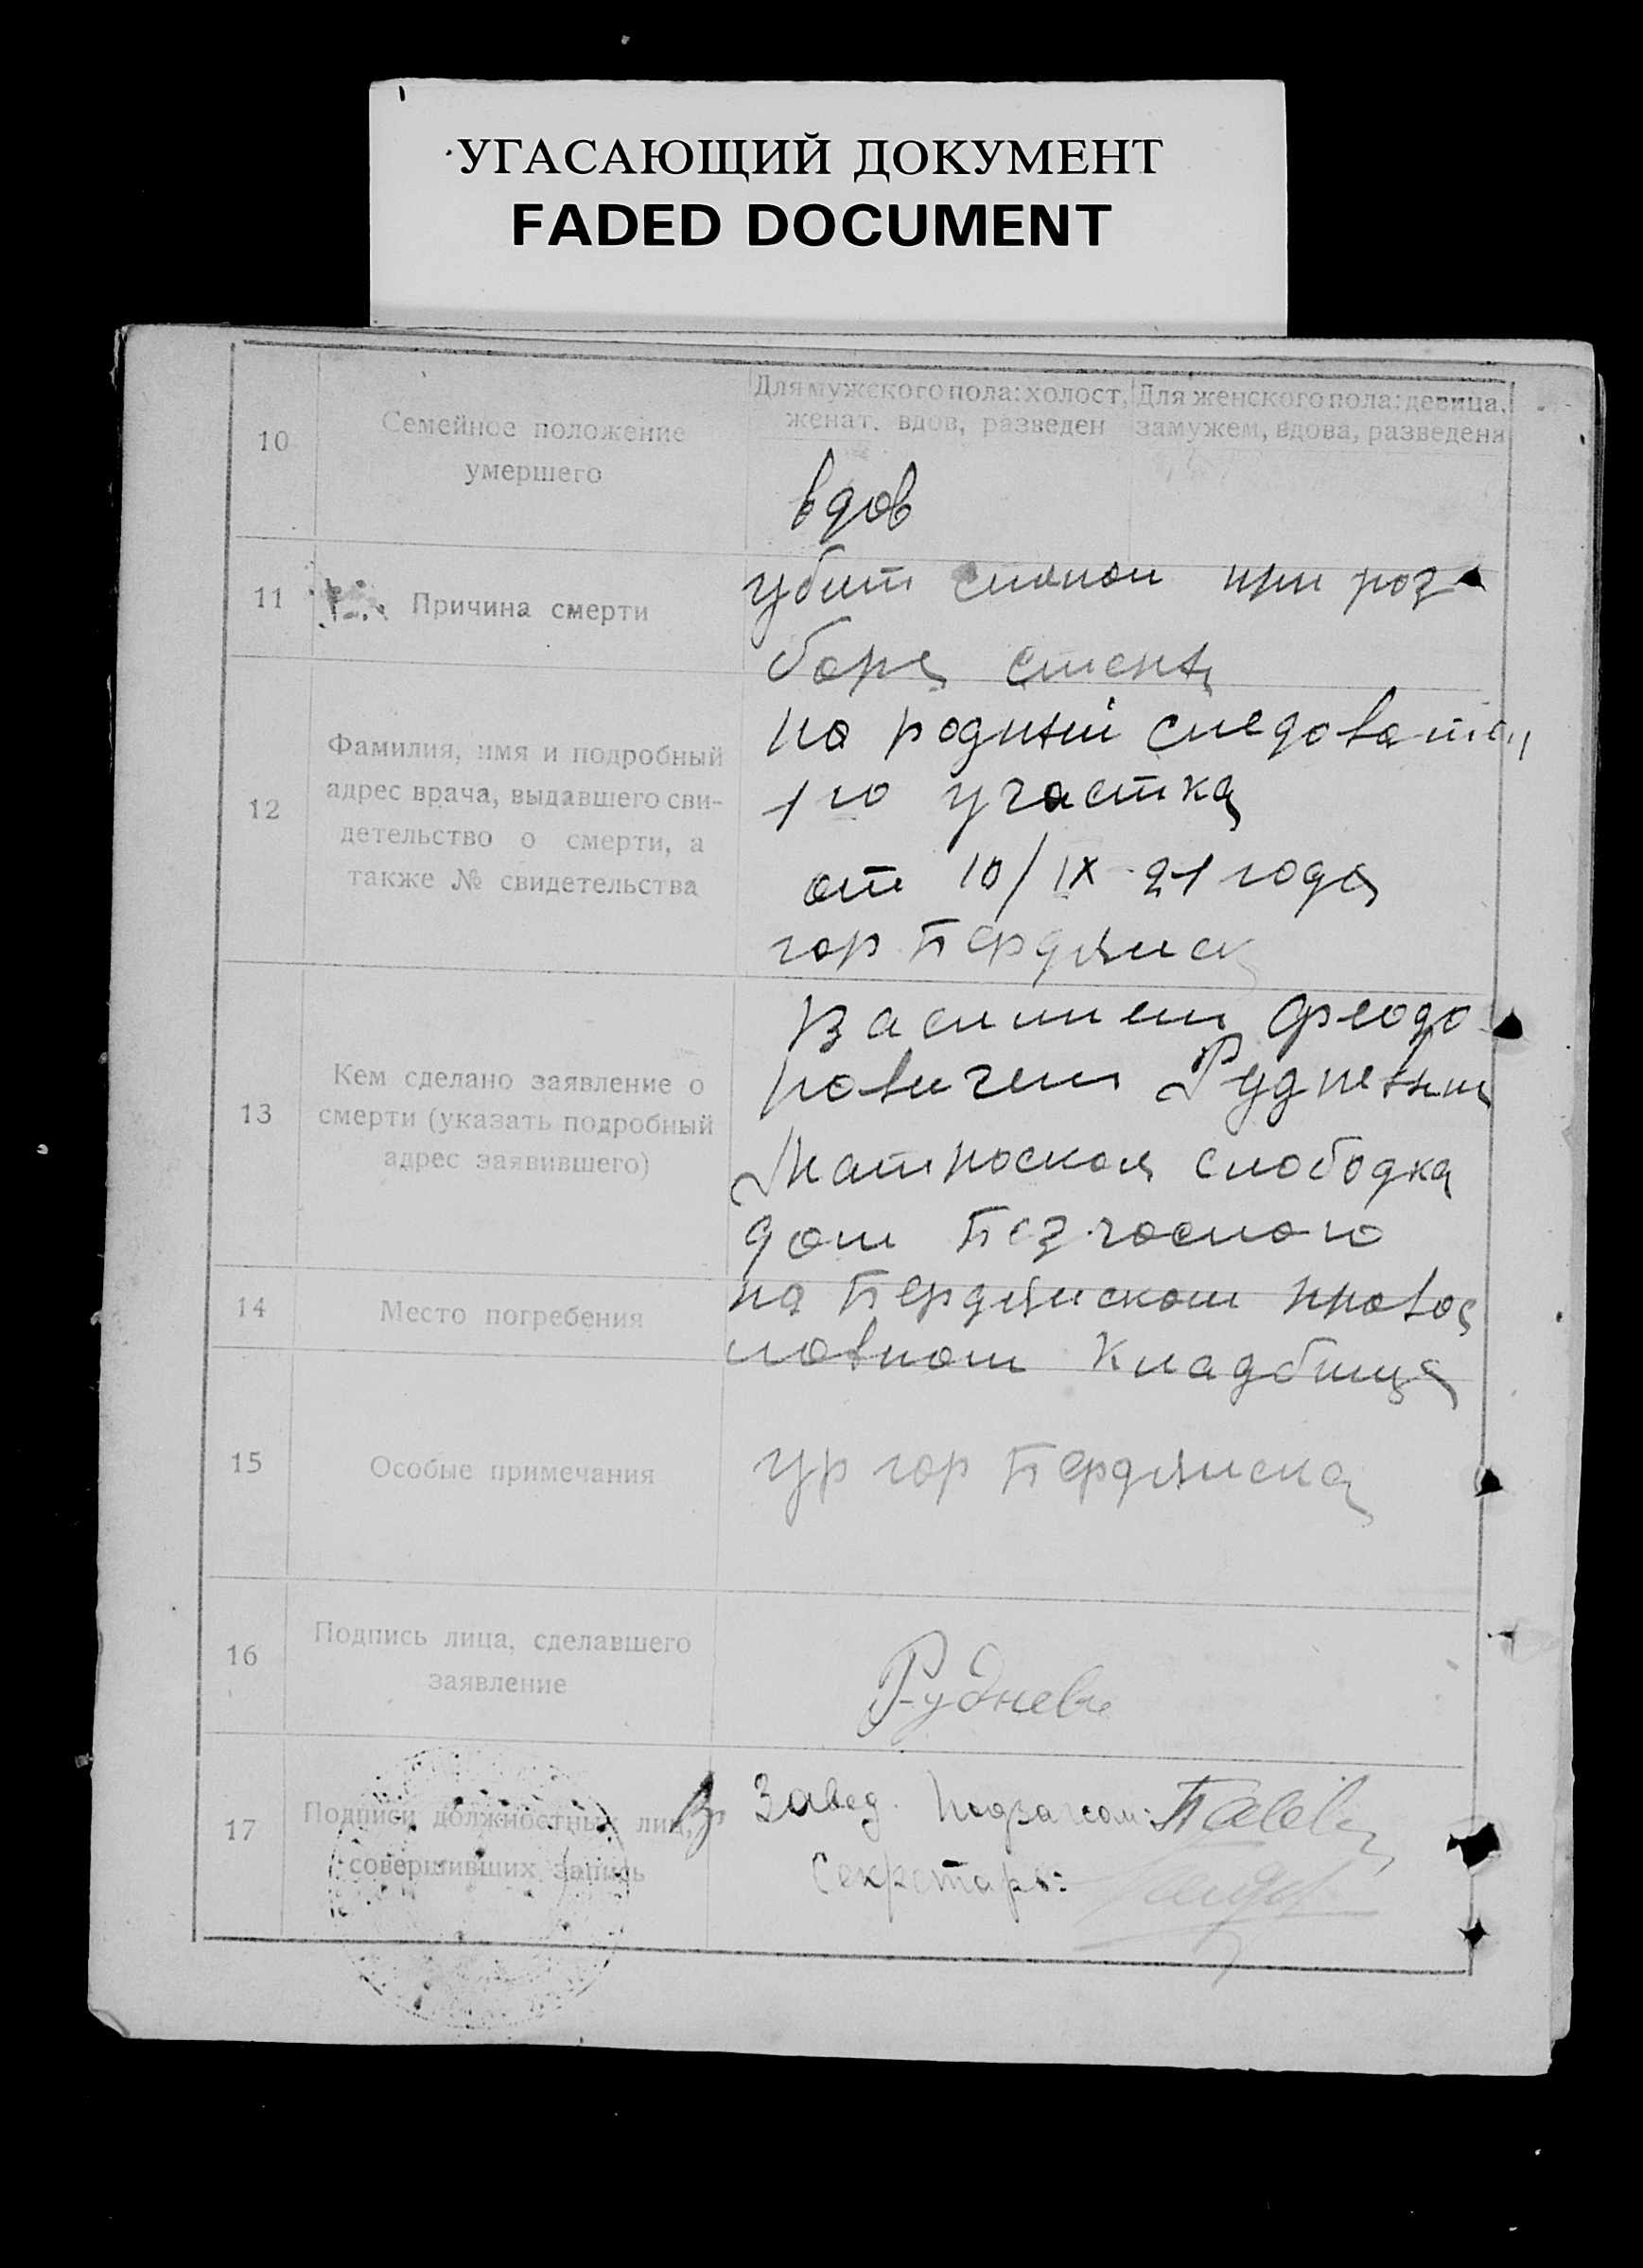 УГАСАЮЩИЙ ДОКУМЕНТ
FADED DOCUMENT
10
Семейное положение
умершего
Для мужского пола: холост,
женат, вдов, разведен
Для женского пола: девица,
замужем, вдова, разведена
вдов
11
Причина смерти
убит при роз
боре стены
12
Фамилия, имя и подробный
адрес врача, выдавшего сви-
детельство о смерти, а
также № свидетельства
народный следователь
1 го участка
от 10/IX-21 года
гор Бердянск
13
Кем сделано заявление о
смерти (указать подробный
адрес заявившего)
Василием Феодо
ровичем Рудневым
Матроская слободка
дом Безгосного
14
Место погребения
на Бердянском право
славном Кладбище
15
Особые примечания
ур гор Бердянска
16
Подпись лица, сделавшего
заявление
Руднев
17
Подписи должностных лиц,
совершивших запись
Завед. Подзагсом:
Секретарь: